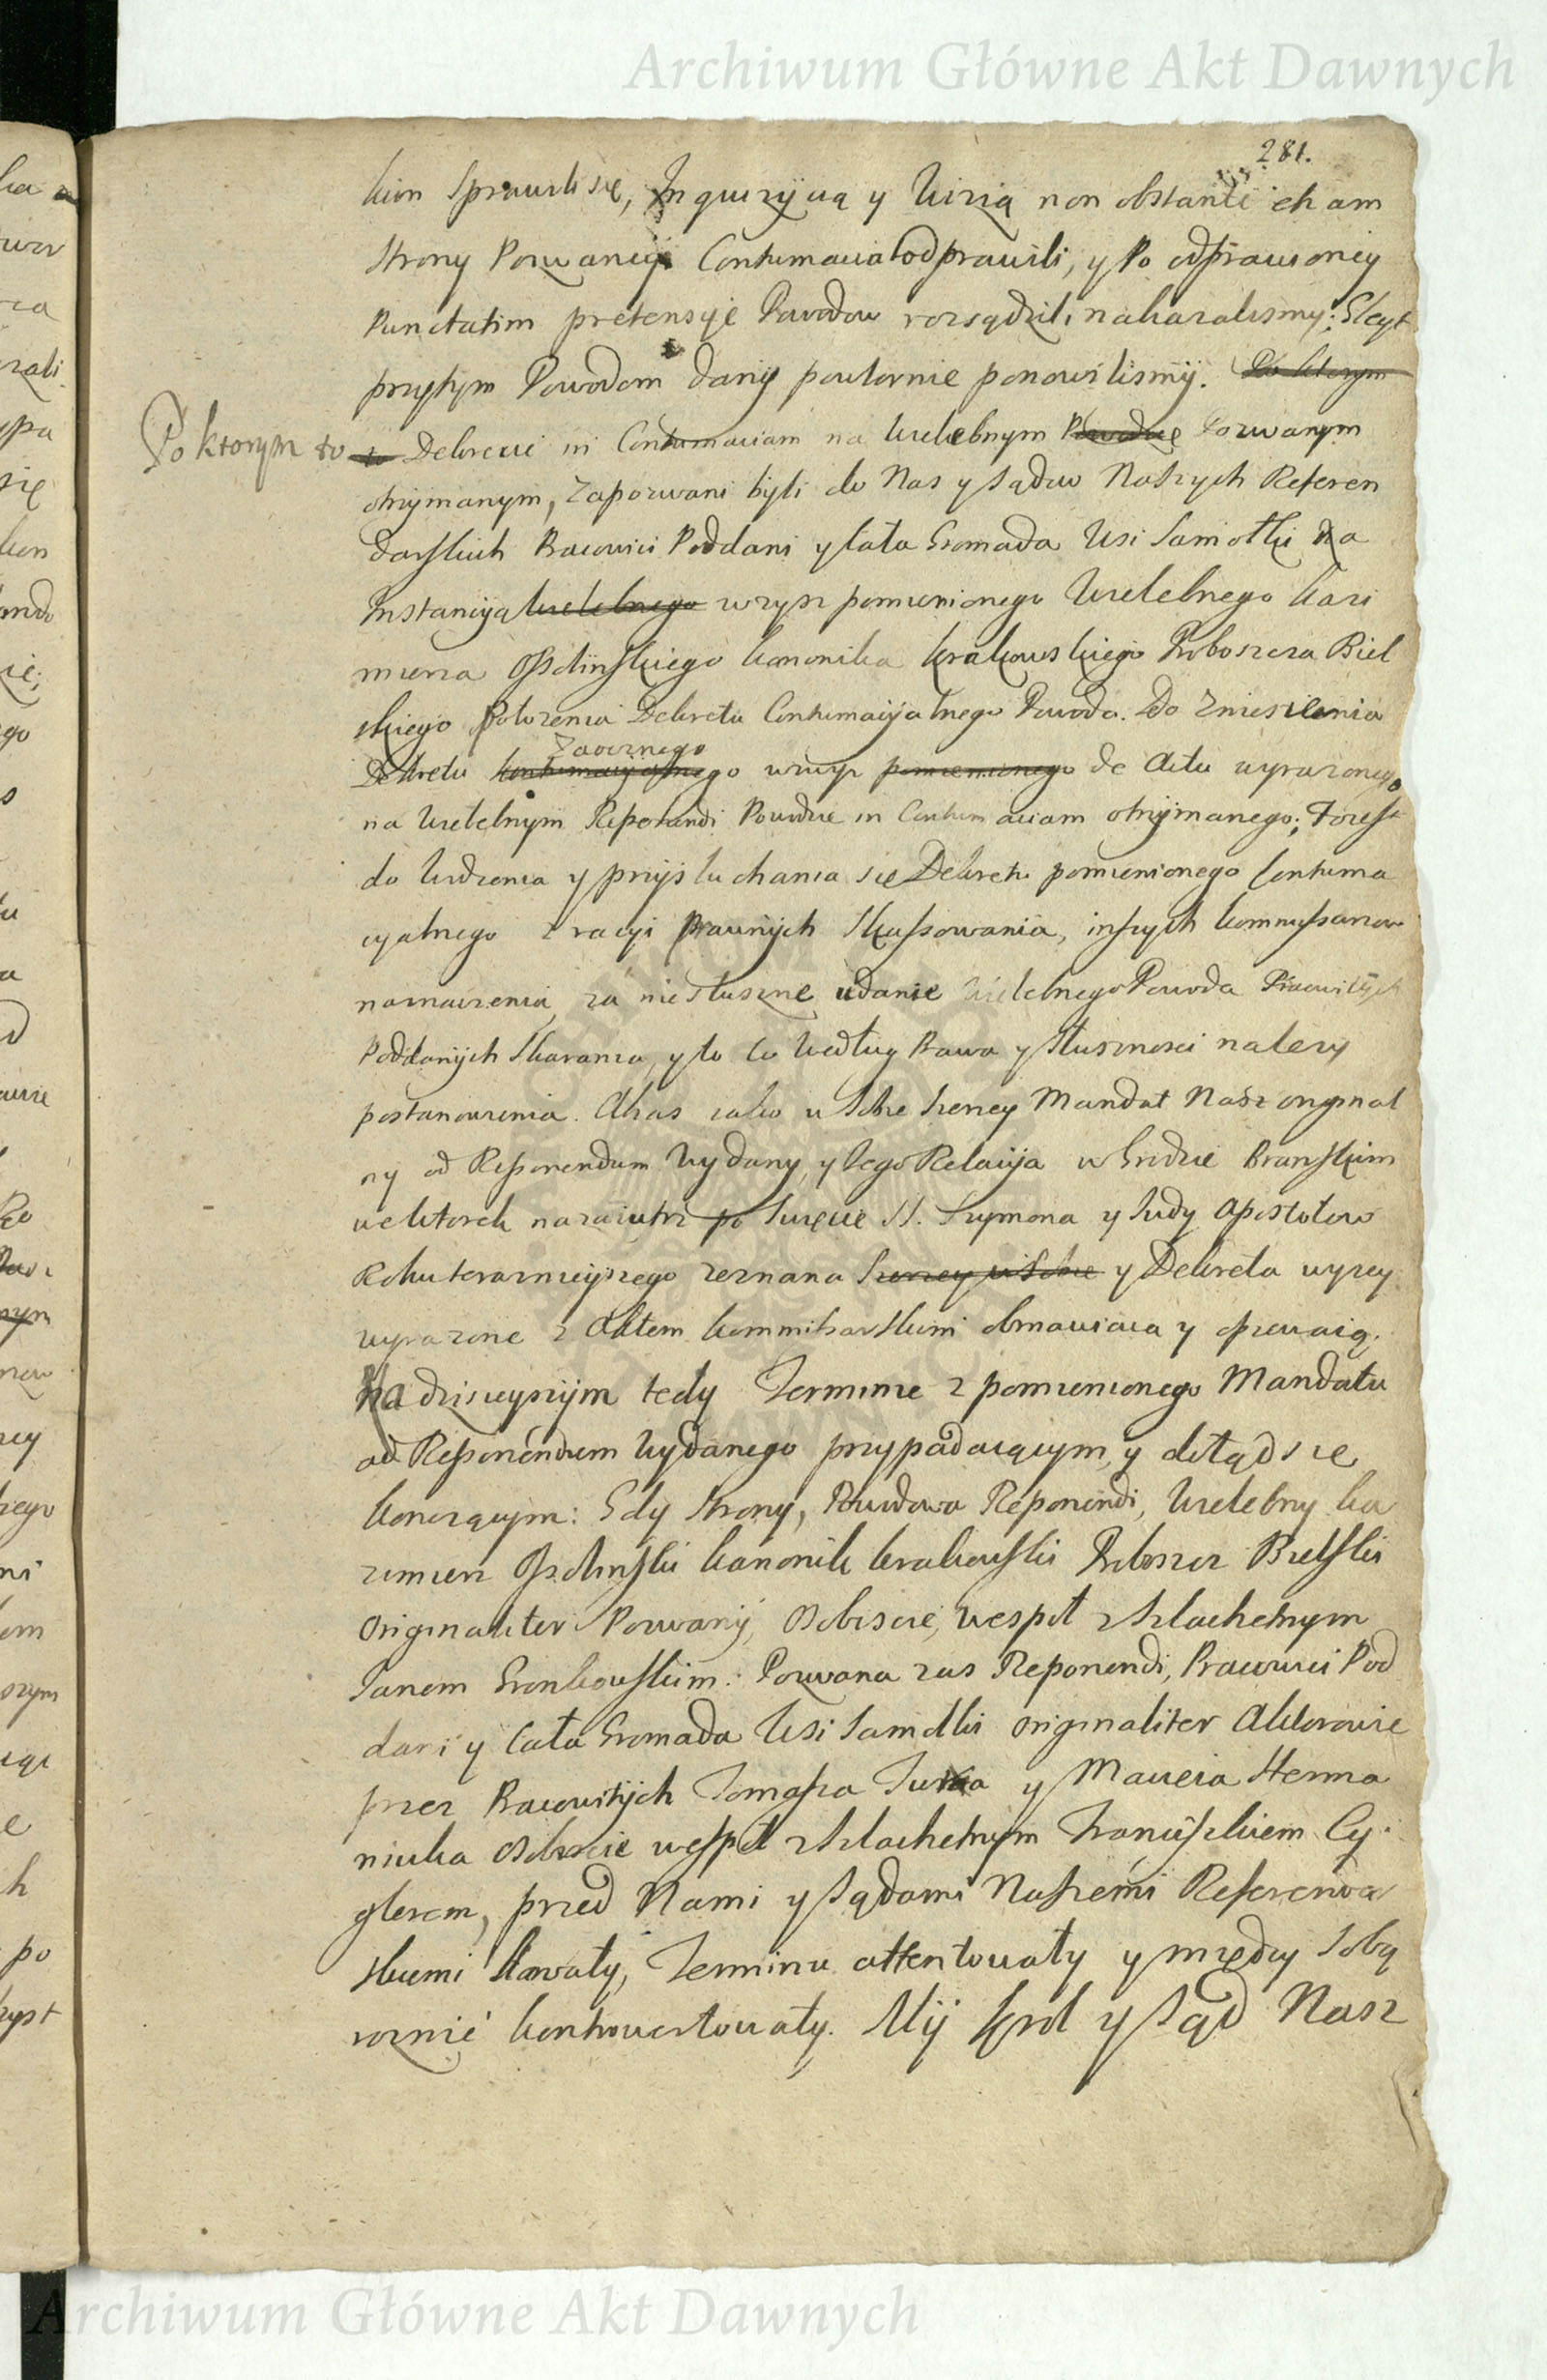 Archiwum Główne Akt Dawnych
281.
kiem sprawili się, Inquizycyą y Wizią non obstante etiam
strony Pozwaney Contumacia odprawili, y Po odprawioney
Punctatim pretensye Powodow rozsądzili nakazalismy; Gleyt
przytym Powodom dany powtornie ponowilismy. Po ktorym
Po ktorym to
to Dekrecie in Contumaciam na Wielebnym Powodzie Pozwanym
otrzymanym, Zapozwani byli do Nas y Sądow Naszych Referen
darskich Pracowici Poddani y Cała Gromada Wsi Samotki na
Instancyą Wielebnego wzysz pomienionego Wielebnego Kazi
mierza Ossolinskiego Kanonika Krakowskiego Proboszcza Biel
skiego Położenia Dekretu Contumacyalnego Powoda. Do Zniesienia
Zaocznego
Dekretu Kontumacyalnego wzwyż pomienionego de Actu wyrazonego
na Wielebnym Reponendi Powodzie in Contumaciam otrzymanego; Toiest
do Widzenia y przysłuchania się Dekretu pomienionego Contuma
cyalnego z racyi Prawnych Skassowania, inszych Kommissarzow
naznaczenia, za niesłuszne udanie Wielebnego Powoda Pracowitych
Poddanych Skarania, y to co według Prawa y Słusznosci nalezy
postanowienia. Akas iako w Sobie szerzey Mandat Nasz original
ny od Reponendum Wydany, y Iego Relacyja w Grodzie Branskim
we Wtorek nazaiutrz po Swięcie SS. Szymona y Judy Apostołow
Roku teraznieyszego zeznana szerzey w Sobie y Dekreta wyzey
wyrazone z Aktem Kommissarskiemi obmawiaią y opiewaią.
Na dzisieyszym tedy Terminie z pomienionego Mandatu
ad Reponendum Wydanego przypadaiącym, y dotąd się
Konczącym: Gdy Strony, Powodowa Reponendi, Wielebny Ka
zimierz Ossolinski Kanonik Krakowski Proboszcz Bielski
Originaliter Pozwany, Osobiscie, wespoł z Szlachetnym
Janem Gronkowskim: Pozwana zas Reponendi, Pracowici Pod
dani y Cała Gromada Wsi Samotki originaliter Aktorowie
przez Pracowitych Tomasza y Macieia Herma
niuka Osobiscie wespoł z Szlachetnym Franciszkiem Cy
glerem, przed Nami y Sądami Naszemi Referendar
skiemi Stawały, Terminu attentowały y między Sobą
roznie kontrowertowały. My Krol y Sąd Nasz
Archiwum Główne Akt Dawnych